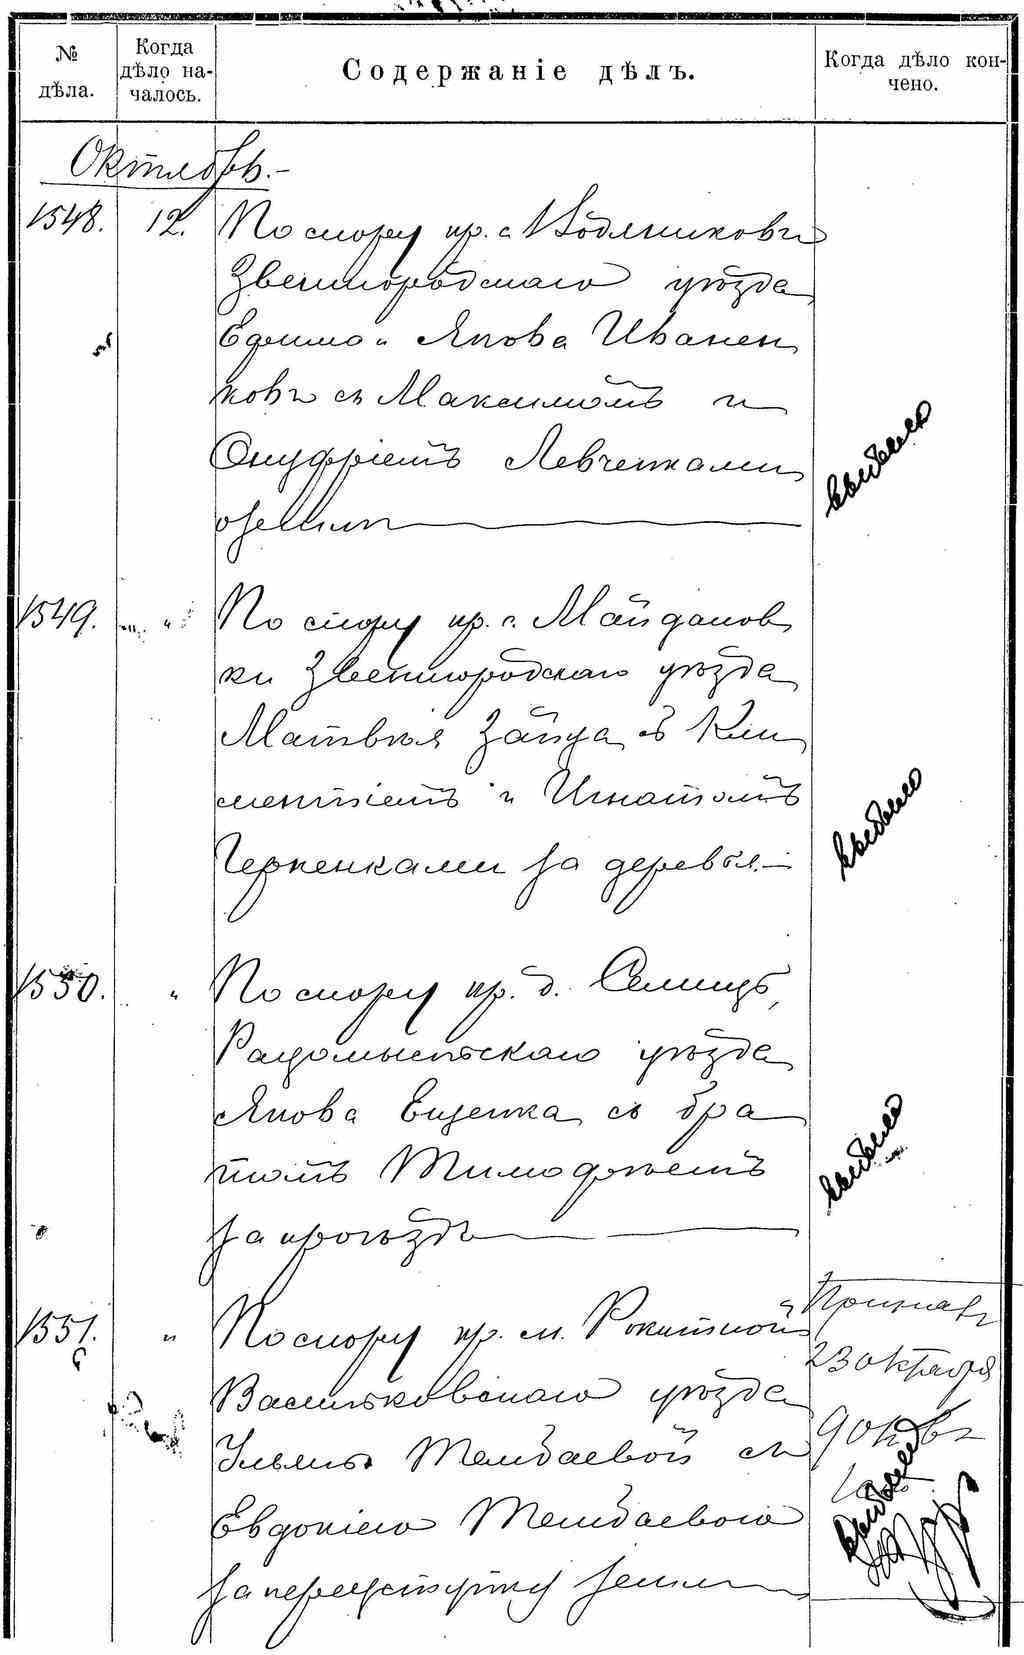 № дѣла.
Когда дѣло на-
чалось.
Содержаніе дѣлъ.
Когда дѣло кон-
чено.
Октябрь.-
1548. 12. По спору кр. с. Водяниковъ
Звенигородскаго уѣзда
Ефима и Якова Иванен
ковъ съ Максимомъ и
Онуфріемъ Левченками
о земли
выбыло
1549. " По спору кр. с. Майданов
ки Звенигородскаго уѣзда
Матвѣя Зайца съ Кли
ментіемъ и Игнатомъ
Герненками за деревья.-
выбыло
1550. " По спору кр. д.
Радомысльскаго уѣзда
Якова Ещенка съ бра
томъ Тимофѣемъ
за проѣздъ
выбыло
1551. " По спору кр. м. Рокитной
Васильковскаго уѣзда
Ульяны Темдаевой съ
Евдокіею Темдаевою
за переуступку земли
23 октября
выбыло